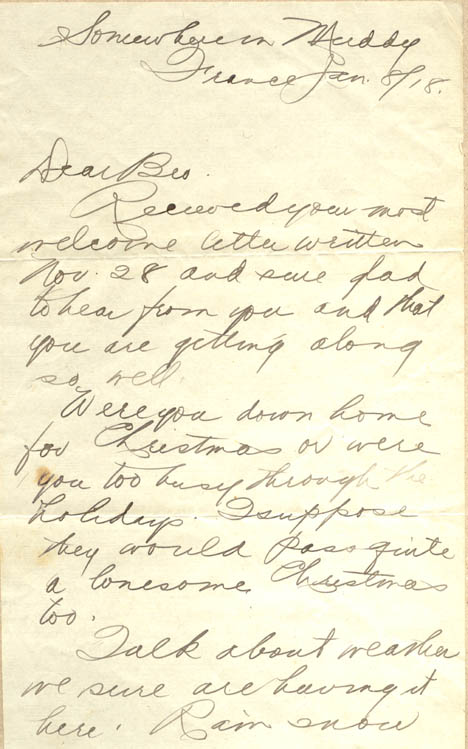 Somewhere in Muddy
France Jan. 8/18.
Dear Bro.
Received your most
welcome letter written
Nov. 28 and sure glad
to hear from you and that
you are getting along
so well.
Were you down home
for Christmas or were
you too busy through the
holidays. I suppose
they would pass quite
a lonesome Christmas
too.
Talk about weather
we sure are having it
here. Rain snow